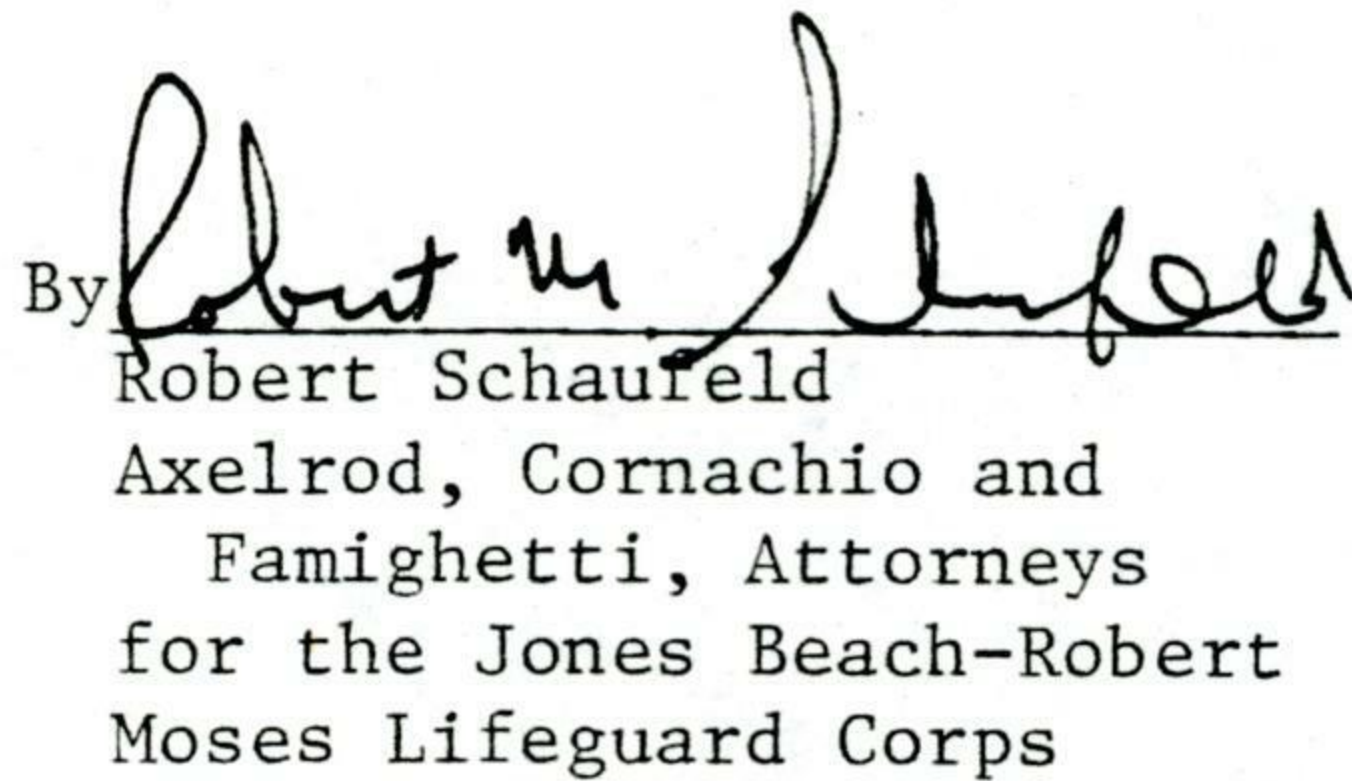 By Robert M Schaufeld
Robert Schaufeld
Axelrod, Cornachio and
Famighetti, Attorneys
for the Jones Beach-Robert
Moses Lifeguard Corps